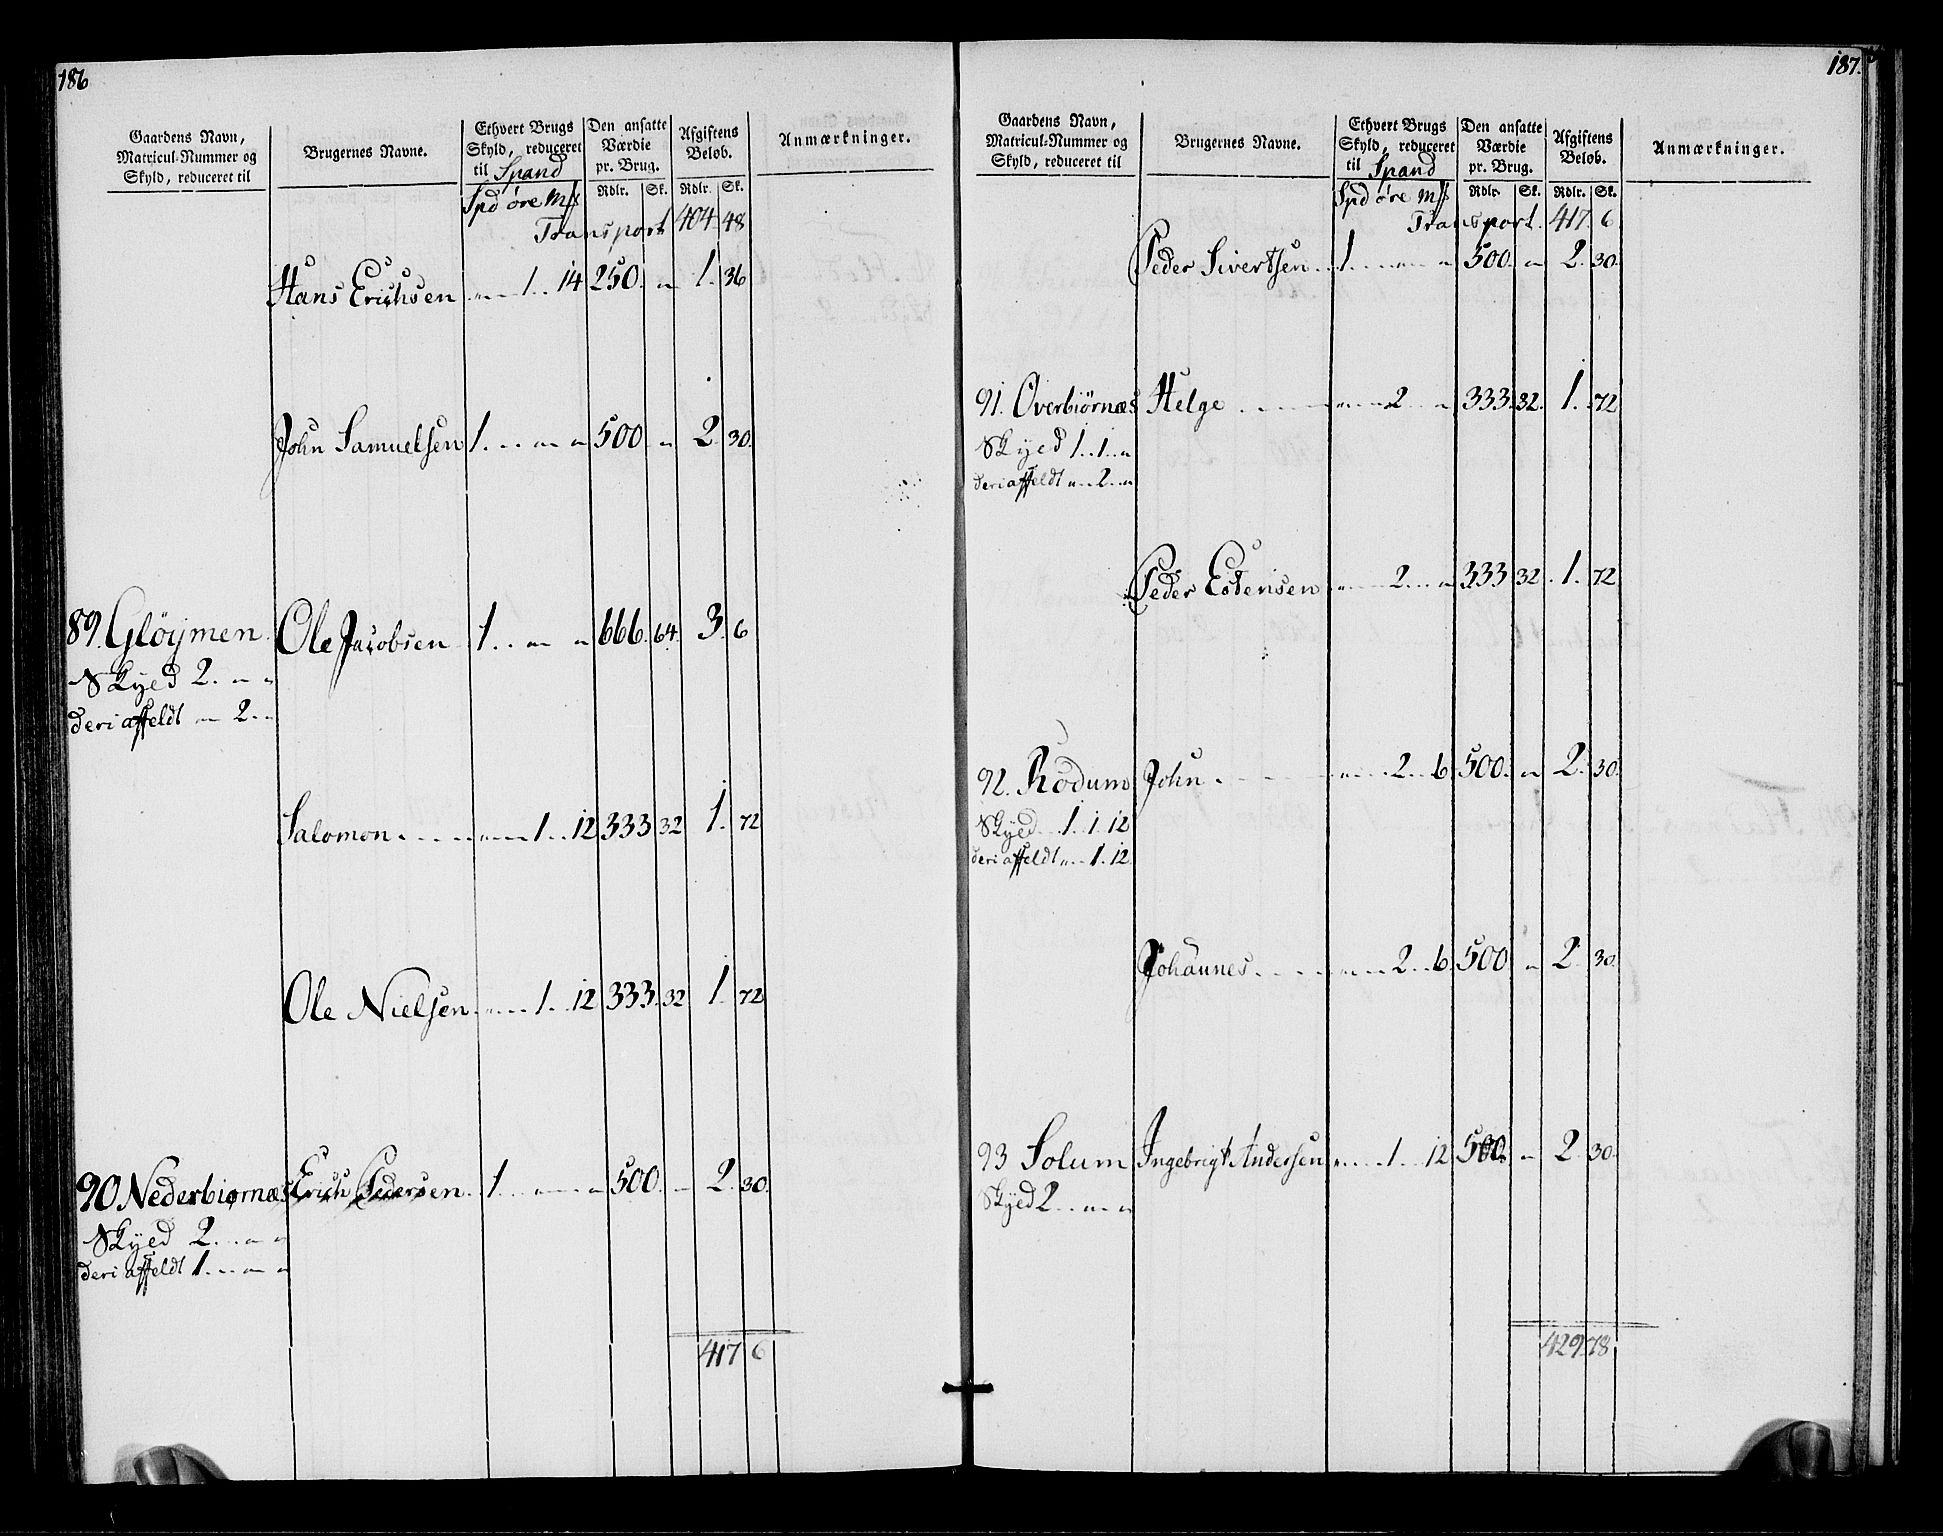 186
Gaardens Navn, Matricul-Nummer og Skyld, reduceret til
Brugernes Navne.
Ethvert Brugs Skyld, reduceret til Spand
Den ansatte Værdie pr. Brug.
Afgiftens Beløb.
Anmærkninger.
Spd øre mk Rdlr. Sk. Rdlr. Sk.
Transport 404 48
Hans Erichsen „ 1 . 14 250. „ 1. 36
John Samuelsen 1. „ „ 500 „ 2 30.
89. Gløymen Ole Jacobsen 1. „ „ 666. 64. 3. 6
Skyed 2. „ „
deri affeldt „ 2. „
Salomon „ 1. 12 333 32 1. 72
Ole Nielsen „ 1. 12 333. 32 1. 72
90 Nederbiørnæs Erich Pedersen. 1. „ „ 500. „ 2. 30.
Skyed 2. „ „
deri affeldt 1. „ „
417 6
187.
Gaardens Navn, Matricul-Nummer og Skyld, reduceret til
Brugernes Navne.
Ethvert Brugs Skyld, reduceret til Spand
Den ansatte Værdie pr. Brug.
Afgiftens Beløb.
Anmærkninger.
Spd øre mk Rdlr. Sk. Rdlr. Sk.
Transport. 417. 6.
Peder Sivertsen 1. „ „ 500. „ 2. 30.
91. Overbiørnæs Helge „ 2 „ 333. 32. 1. 72
Skyed 1. 1. „
deri affeldt „ 2. „
Peder Estensen „ 2. „ 333 32. 1. 72
92. Rødum John „ 2. 6 500. „ 2. 30.
Skyed 1. 1. 12
deri affeldt „ 1. 12
Johannes „ 2. 6 500 „ 2. 30.
93 Solum Ingebrigt Andersen „ 1. 12 500. „ 2. 30.
Skyed 2. „ „
429. 78